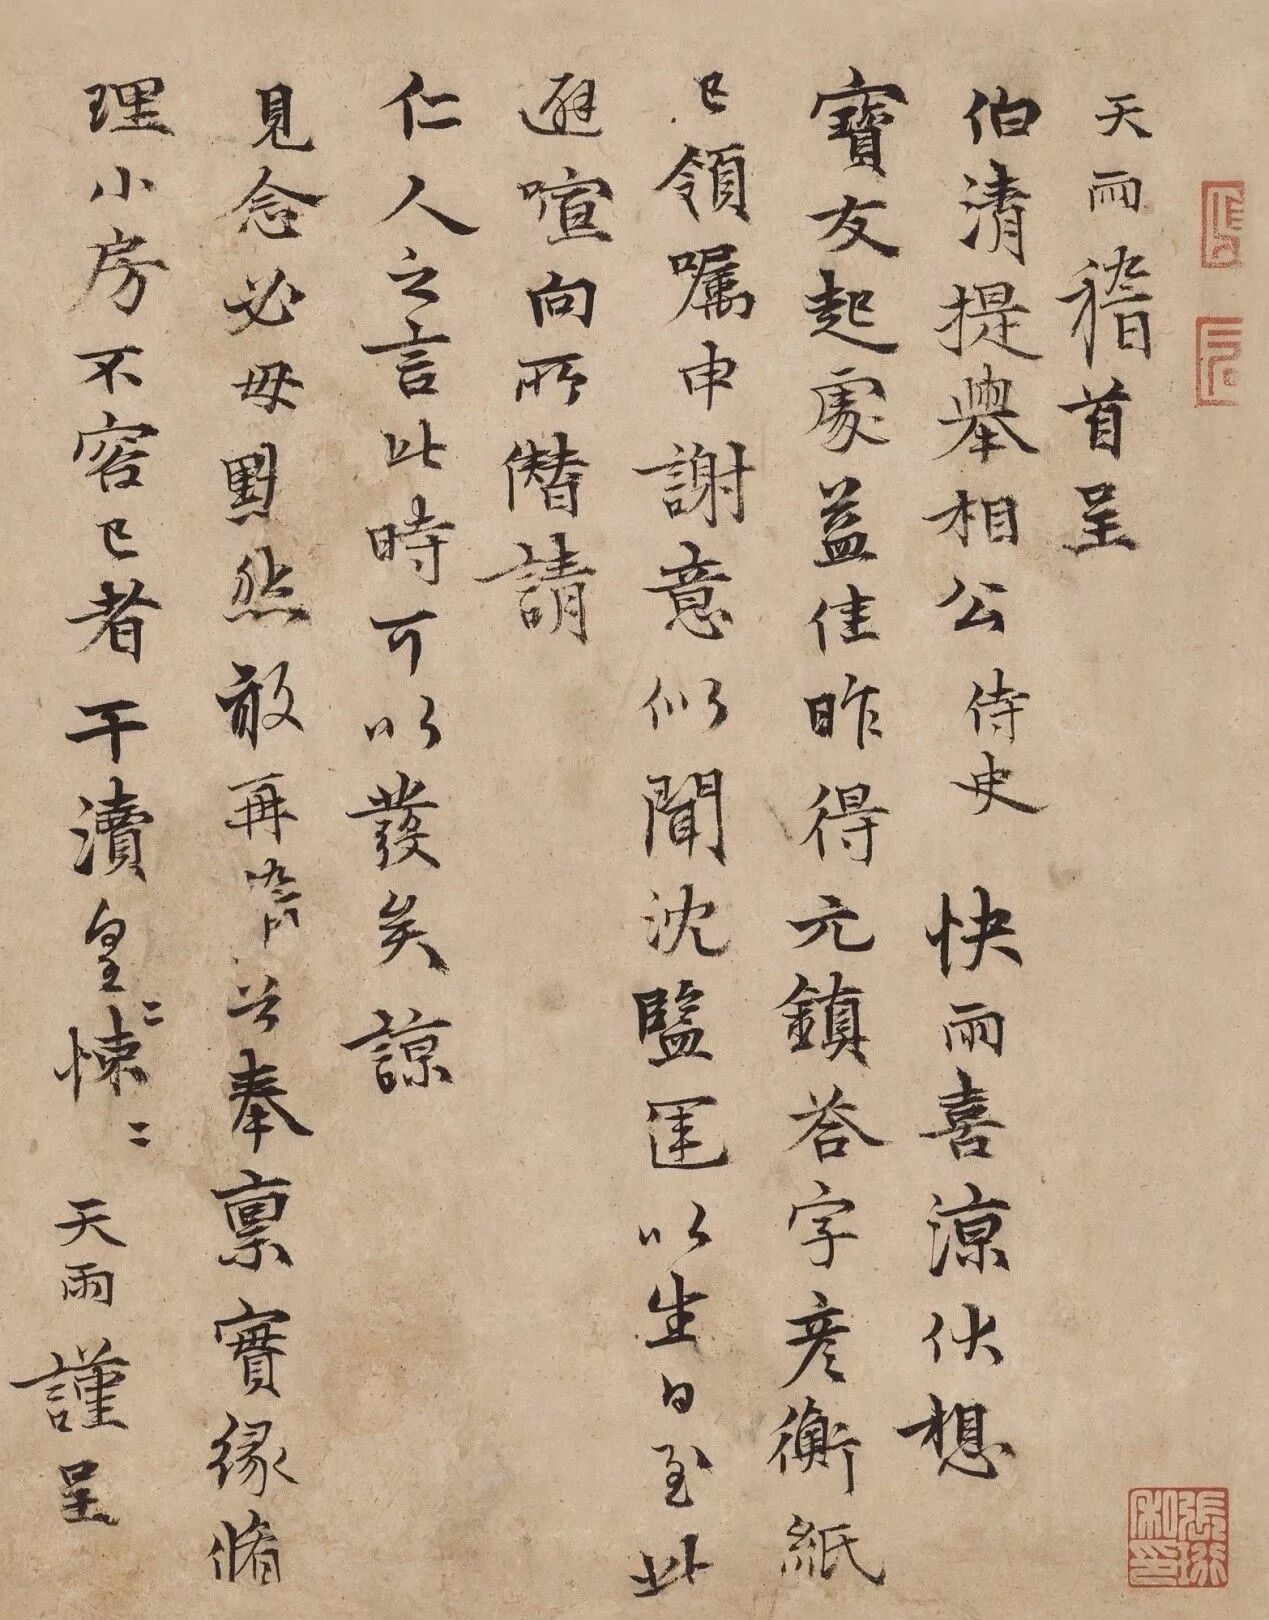 天雨稽首呈
伯清提舉相公侍史 快雨喜涼伏想
寶友起處益佳昨得元鎮荅字彥衡紙
已領囑申謝意似聞沈鹽運以生日至此
避喧向所僭請
仁人之言此時可以發矣諒
見念必毋默然敢再瀆茲奉稟實緣脩
理小房不容已者干瀆皇二悚二 天雨謹呈